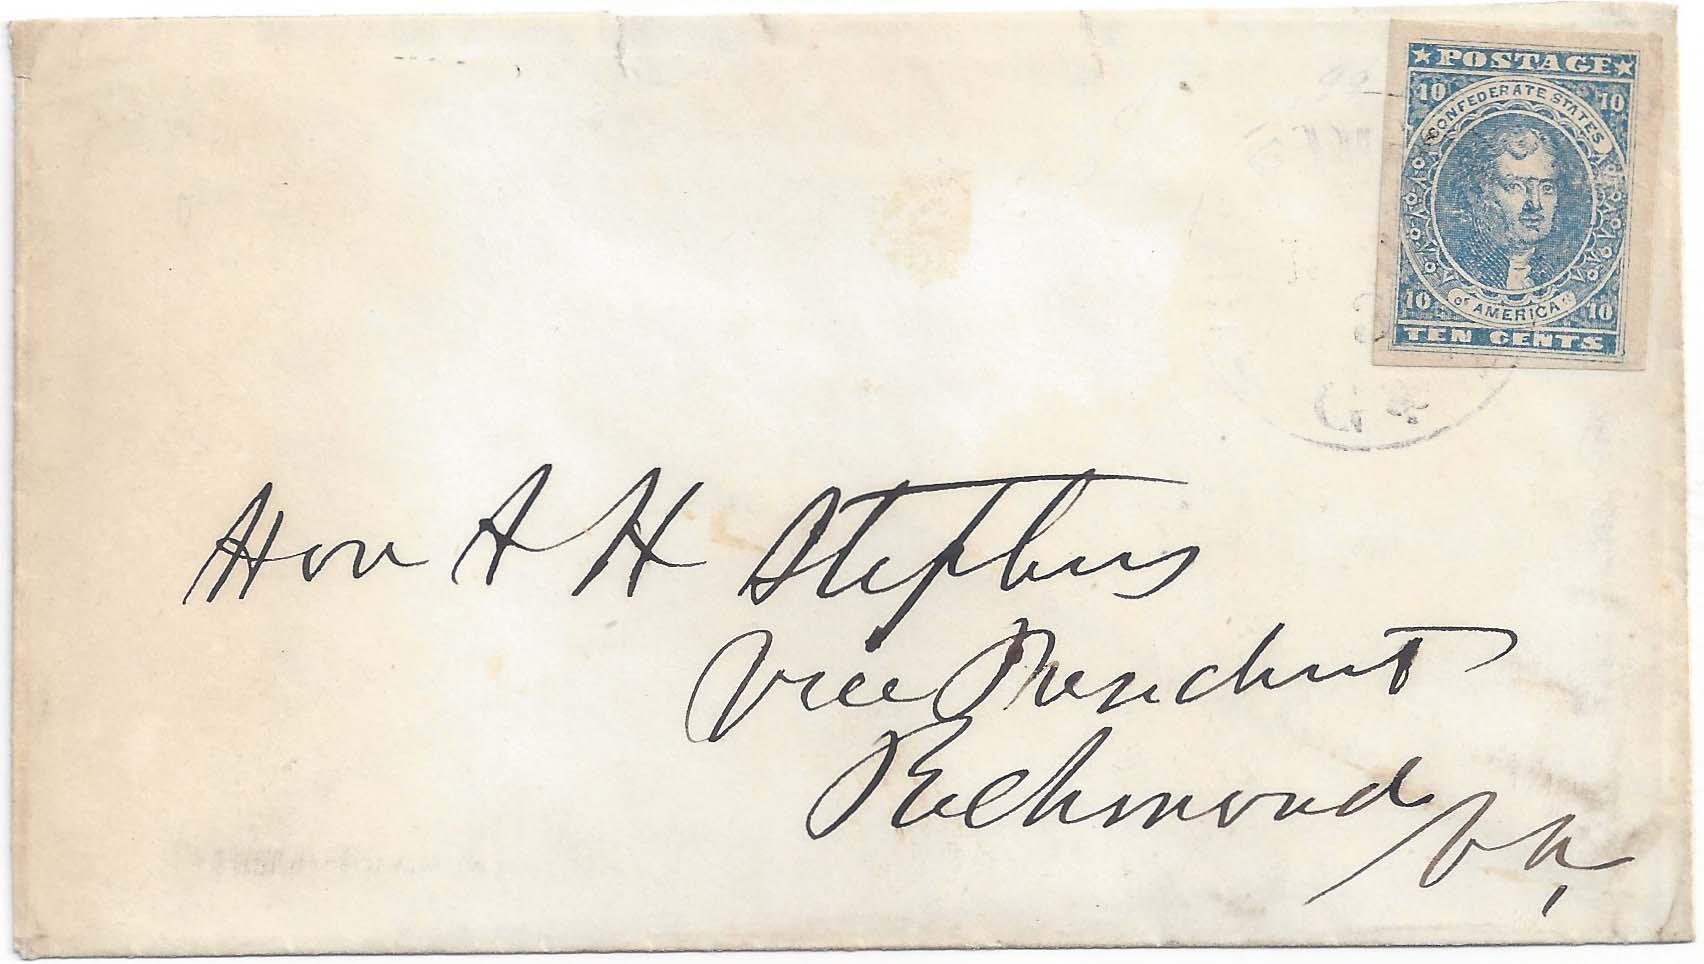 ★POSTAGE★
10 10
CONFEDERATE STATES
OF AMERICA
10 10
TEN CENTS
Ga
Hon A H Stephens
Vice President
Richmond
Va,